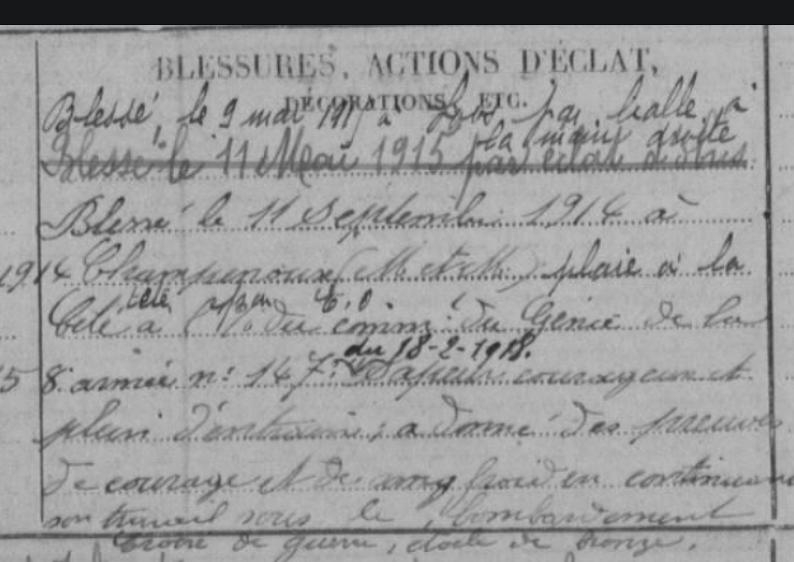 BLESSURES, ACTIONS D'ÉCLAT,
DÉCORATIONS, ETC.
Blessé, le 9 mai 191 à par balle à
la main droite
Blessé le 11 Mai 1915 par éclat d'obus
Blessé le 11 Septembre 1914 à
1914 Champenoux (M. et M.) plaie à la
tête
Cité à du comm. du Génie de la
du 18-2-1918.
5 8e armée n: 147: Sapeur courageux et
plein d'entrain; a donné des preuves
de courage et de sang froid en continuant
son travail sous le bombardement
Croix de guerre, étoile de bronze.